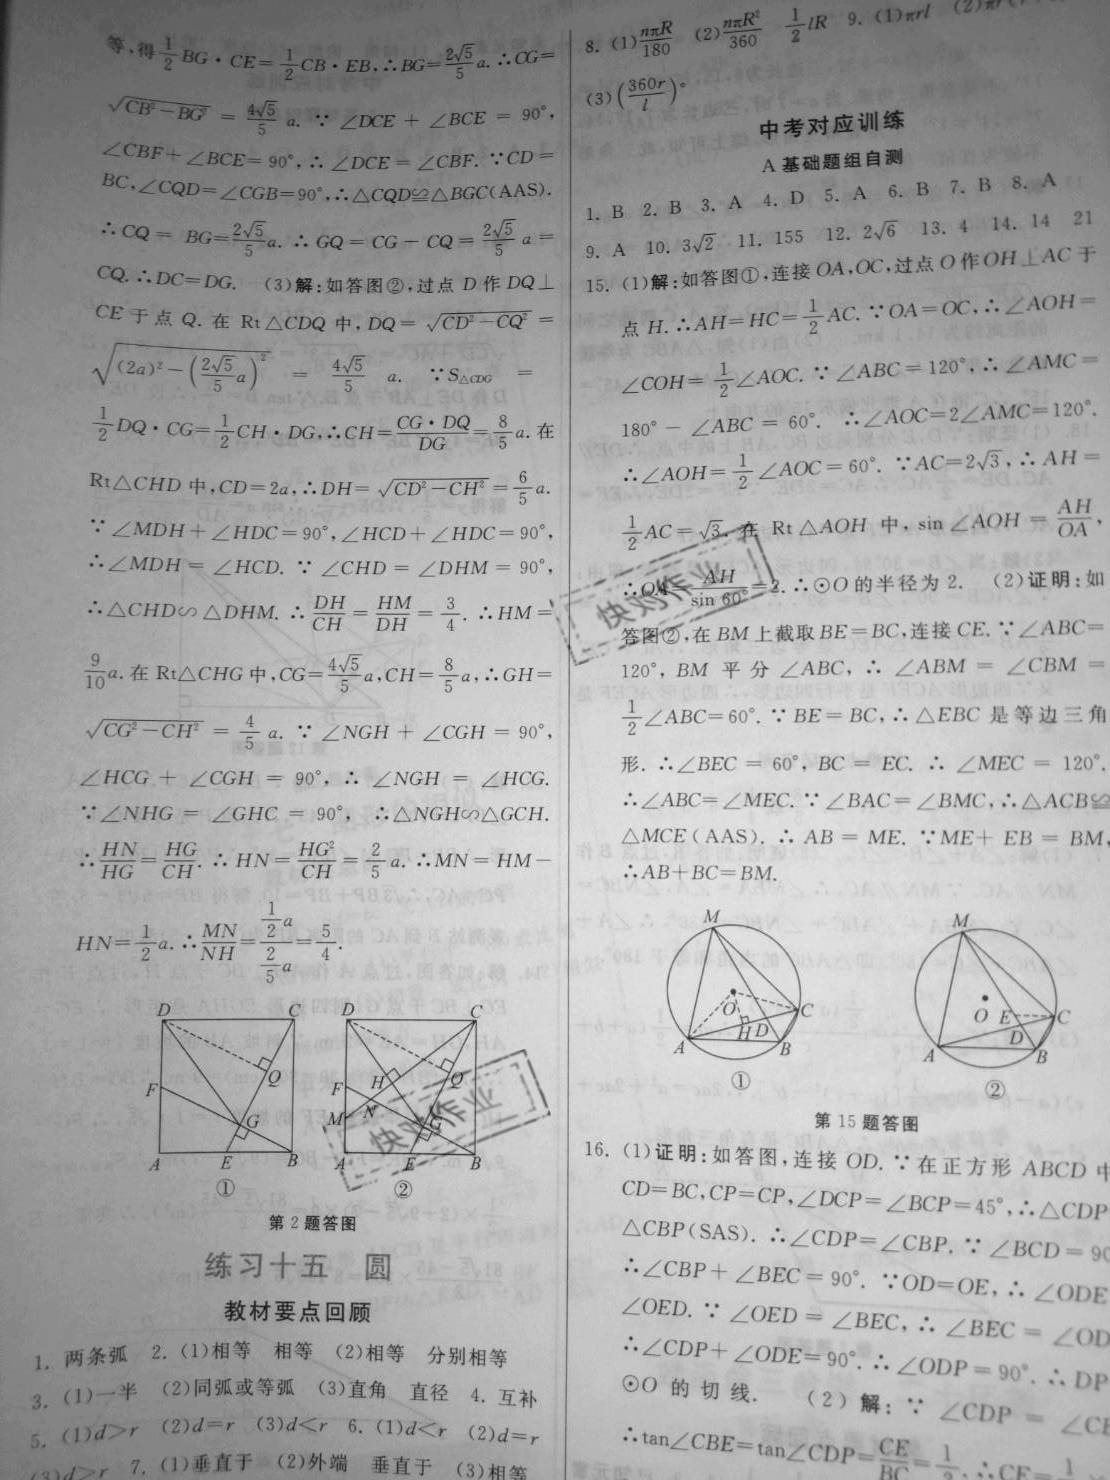 等,得1/2BG·CE=1/2CB·EB,∴BG=2√5/5 a.∴CG=
√(CB²-BG²)=4√5/5 a.∵∠DCE+∠BCE=90°,
∠CBF+∠BCE=90°,∴∠DCE=∠CBF.∵CD=
BC,∠CQD=∠CGB=90°,∴△CQD≌△BGC(AAS).
∴CQ=BG=2√5/5 a.∴GQ=CG-CQ=2√5/5 a=
CQ.∴DC=DG. (3)解:如答图②,过点D作DQ⊥
CE于点Q.在Rt△CDQ中,DQ=√(CD²-CQ²)=
√((2a)²-(2√5/5 a)²)=4√5/5 a.∵S△CDG=
1/2DQ·CG=1/2CH·DG,∴CH=CG·DQ/DG=8/5 a.在
Rt△CHD中,CD=2a,∴DH=√(CD²-CH²)=6/5 a.
∵∠MDH+∠HDC=90°,∠HCD+∠HDC=90°,
∴∠MDH=∠HCD.∵∠CHD=∠DHM=90°,
∴△CHD∽△DHM.∴DH/CH=HM/DH=3/4.∴HM=
9/10 a.在Rt△CHG中,CG=4√5/5 a,CH=8/5 a,∴GH=
√(CG²-CH²)=4/5 a.∵∠NGH+∠CGH=90°,
∠HCG+∠CGH=90°,∴∠NGH=∠HCG.
∵∠NHG=∠GHC=90°,∴△NGH∽△GCH.
∴HN/HG=HG/CH.∴HN=HG²/CH=2/5 a.∴MN=HM-
HN=1/2 a.∴MN/NH=(1/2 a)/(2/5 a)=5/4.
D C D C
Q H Q
F G F M N G
A E B A E B
① ②
第2题答图
练习十五 圆
教材要点回顾
1. 两条弧 2. (1)相等 相等 (2)相等 分别相等
3. (1)一半 (2)同弧或等弧 (3)直角 直径 4. 互补
5. (1)d>r (2)d=r (3)d<r 6. (1)d<r (2)d=r
(3)d>r 7. (1)垂直于 (2)外端 垂直于 (3)相等
8. (1)nπR/180 (2)nπR²/360 1/2 lR 9. (1)πrl
(3)(360r/l)°
中考对应训练
A 基础题组自测
1. B 2. B 3. A 4. D 5. A 6. B 7. B 8. A
9. A 10. 3√2 11. 155 12. 2√6 13. 4 14. 14 21
15. (1)解:如答图①,连接OA,OC,过点O作OH⊥AC于
点H.∴AH=HC=1/2AC.∵OA=OC,∴∠AOH=
∠COH=1/2∠AOC.∵∠ABC=120°,∴∠AMC=
180°-∠ABC=60°.∴∠AOC=2∠AMC=120°.
∴∠AOH=1/2∠AOC=60°.∵AC=2√3,∴AH=
1/2AC=√3.在Rt△AOH中,sin∠AOH=AH/OA,
∴OA=AH/sin 60°=2.∴⊙O的半径为2. (2)证明:如
答图②,在BM上截取BE=BC,连接CE.∵∠ABC=
120°,BM平分∠ABC,∴∠ABM=∠CBM=
1/2∠ABC=60°.∵BE=BC,∴△EBC是等边三角
形.∴∠BEC=60°,BC=EC.∴∠MEC=120°.
∴∠ABC=∠MEC.∵∠BAC=∠BMC,∴△ACB≌
△MCE(AAS).∴AB=ME.∵ME+EB=BM,
∴AB+BC=BM.
M M
O C O E C
A H D B A D B
① ②
第15题答图
16. (1)证明:如答图,连接OD.∵在正方形ABCD中
CD=BC,CP=CP,∠DCP=∠BCP=45°,∴△CDP
△CBP(SAS).∴∠CDP=∠CBP.∵∠BCD=90
∴∠CBP+∠BEC=90°.∵OD=OE,∴∠ODE
∠OED.∵∠OED=∠BEC,∴∠BEC=∠OD
∴∠CDP+∠ODE=90°.∴∠ODP=90°.∴DP
⊙O的切线. (2)解:∵∠CDP=∠CB
∴tan∠CBE=tan∠CDP=CE/BC=1/2.∴CE=
快对作业
快对作业